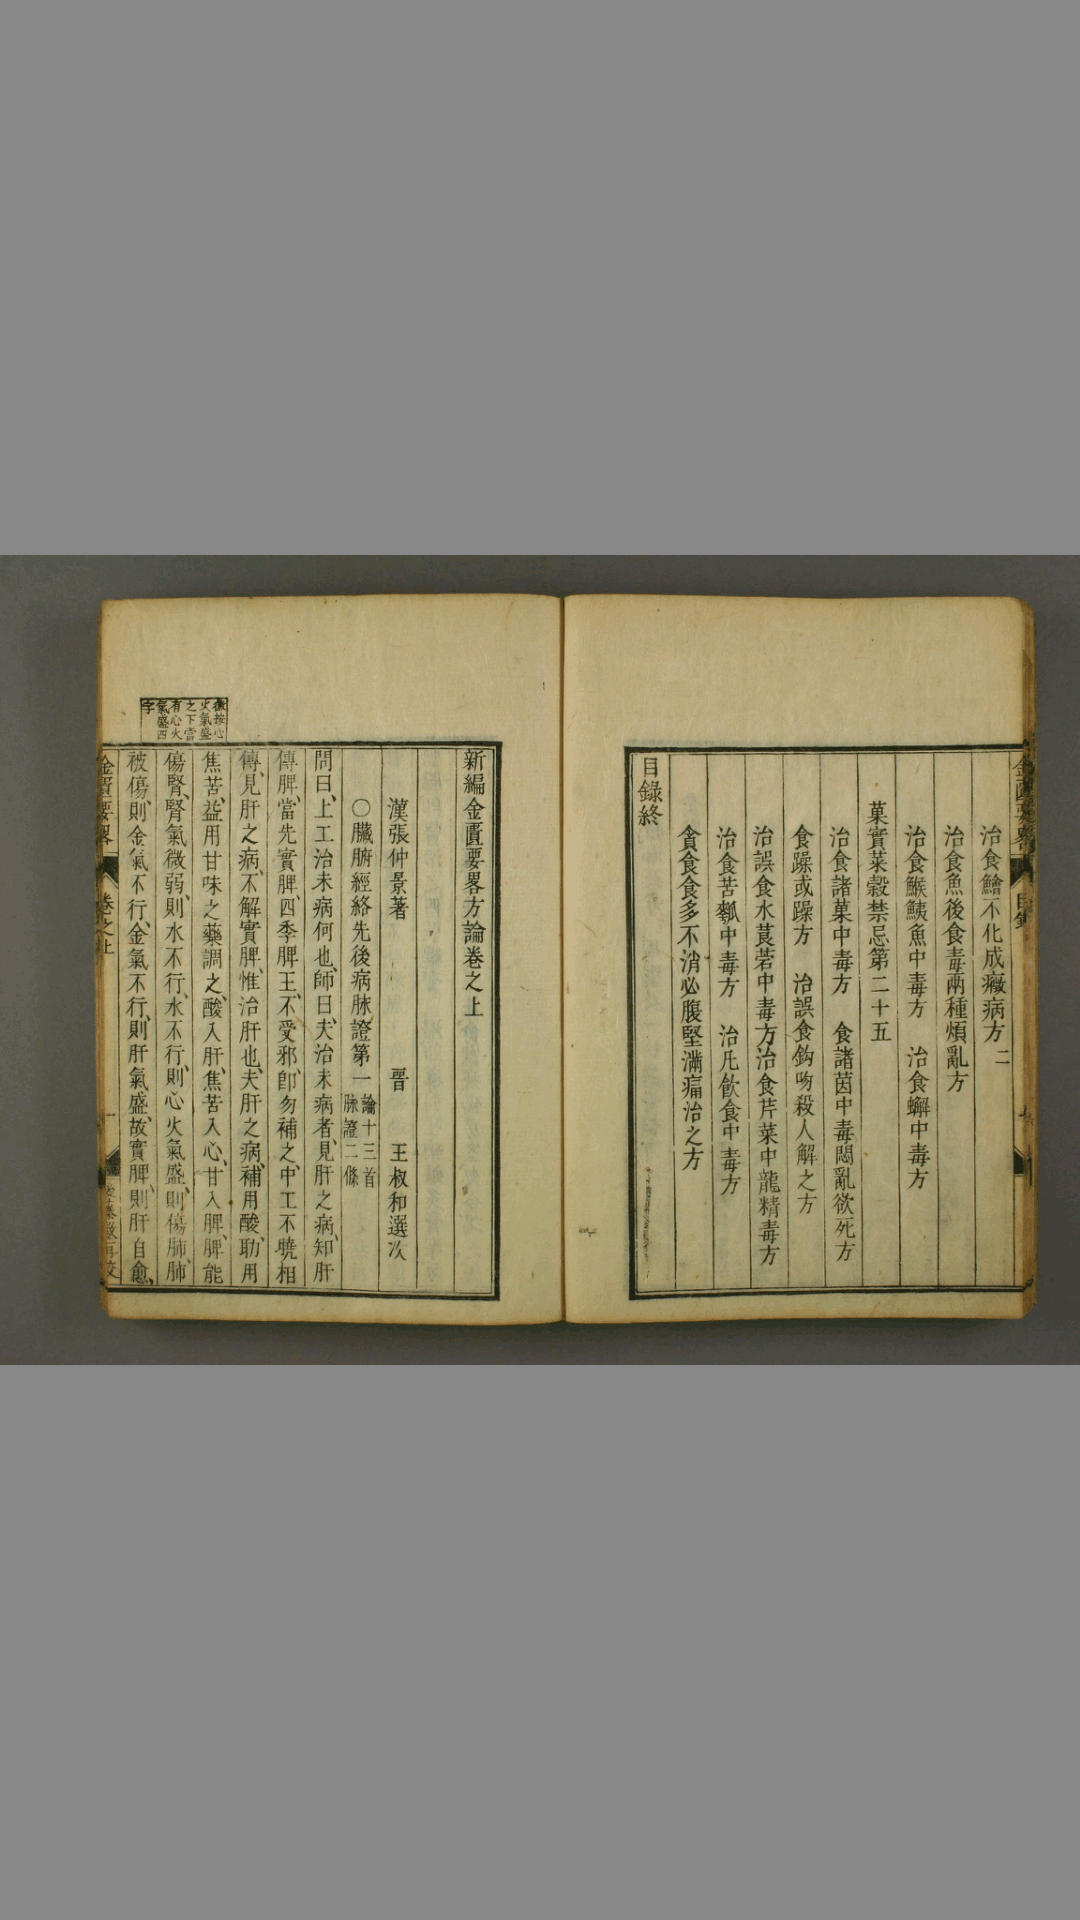 治食鱠不化成癥病方 二
治食魚後食毒兩種煩亂方
治食鯸鮧魚中毒方 治食蠏中毒方
菓實菜穀禁忌第二十五
治食諸菓中毒方 食諸菌中毒悶亂欲死方
食躁或躁方 治誤食鈎吻殺人解之方
治誤食水莨菪中毒方治食芹菜中龍精毒方
治食苦瓠中毒方 治凡飲食中毒方
貪食食多不消必腹堅滿痛治之方
目錄終
新編金匱要畧方論卷之上
漢張仲景著 晉 王叔和選次
○臟腑經絡先後病脉證第一 論十三首 脉證二條
問曰、上工治未病何也、師曰、夫治未病者、見肝之病、知肝
傳脾、當先實脾、四季脾王、不受邪、卽勿補之、中工不曉相
傳、見肝之病、不解實脾、惟治肝也、夫肝之病、補用酸、助用
焦苦、益用甘味之藥調之、酸入肝、焦苦入心、甘入脾、脾能
傷腎、腎氣微弱、則水不行、水不行、則心火氣盛、則傷肺、肺
被傷、則金氣不行、金氣不行、則肝氣盛、故實脾、則肝自愈、
按心
火氣盛
之下當
有心火
氣盛四
字
金匱要畧
卷之上
一
金匱要畧
目錄